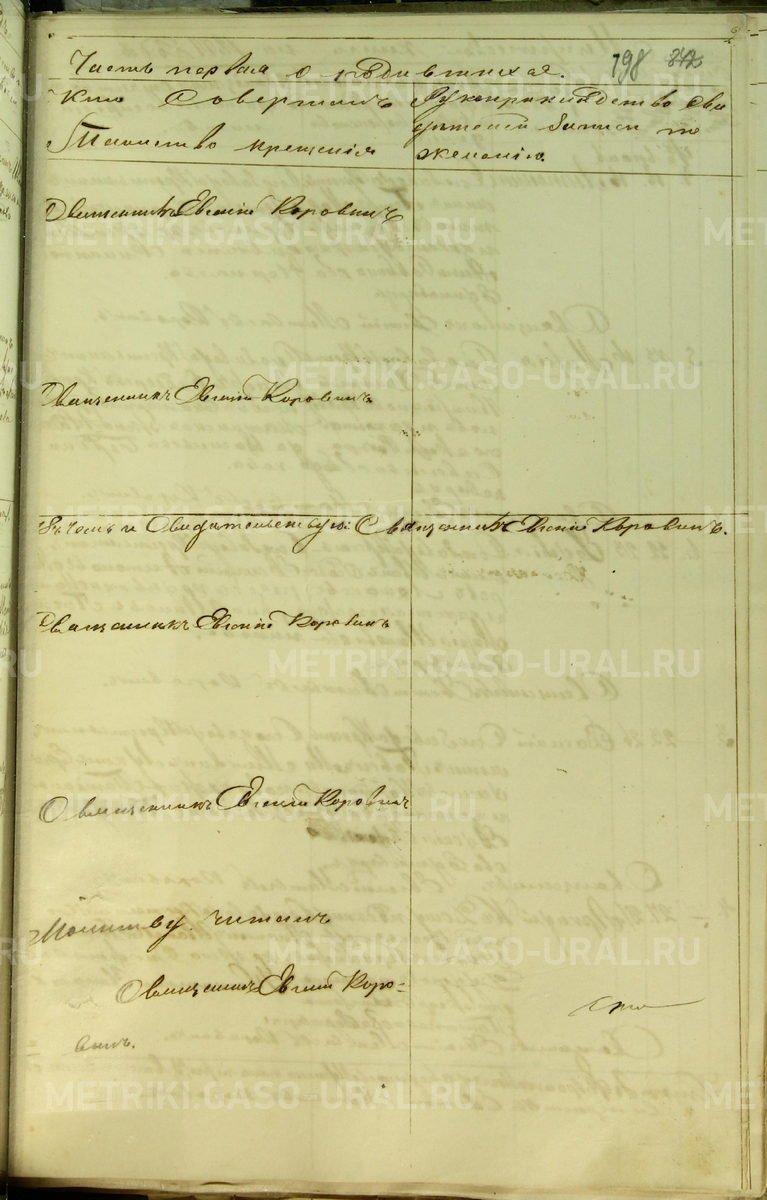 Часть первая о родившихся. 198
Кто Совершалъ
Таинство крещенія
Рукоприкладство сви
дѣтелей записи по
желанію.
Священникъ Евгеній Коровинъ
Священникъ Евгеній Коровинъ
въ чемъ и Свидѣтельствую: Священникъ Евгеній Коровинъ.
Священникъ Евгеній Коровинъ
Священникъ Евгеній Коровинъ
Молитву читалъ
Священникъ Евгеній Коро-
винъ.
METRIKI.GASO-URAL.RU